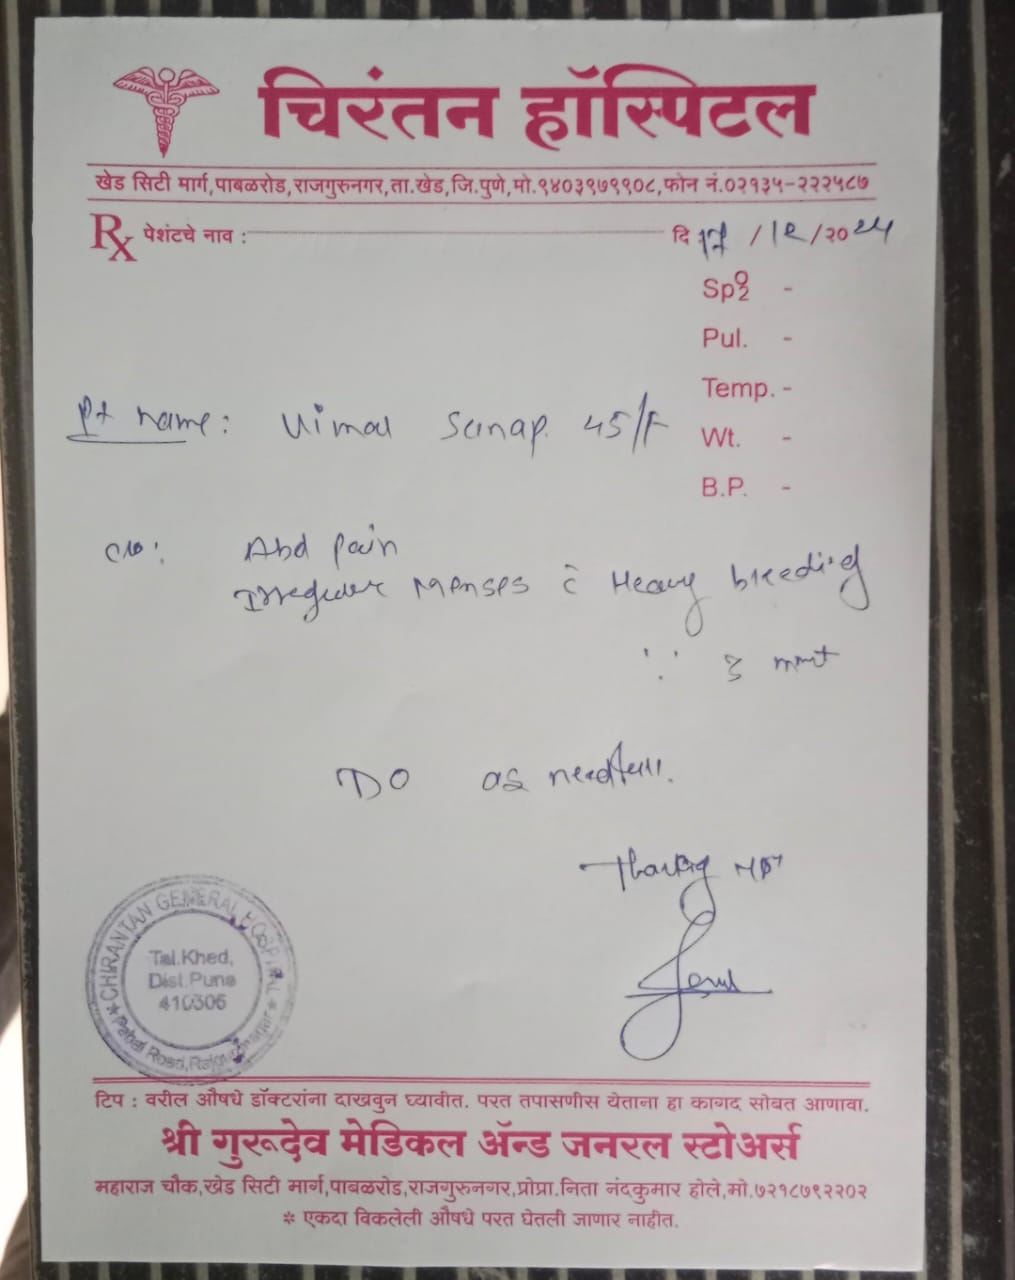 चिरंतन हॉस्पिटल
खेड सिटी मार्ग,पाबळरोड,राजगुरुनगर,ता.खेड,जि.पुणे,मो.९४०३९७९९०८,फोन नं.०२१३५-२२२५८७
Rx पेशंटचे नाव : दि 17 /12/२०24
SpO2 -
Pul. -
Temp. -
Pt name: Vimal Sanap. 45/F
Wt. -
B.P. -
c/o: Abd pain
Irregular Menses c̄ Heavy bleeding
∵ 3 mnt
DO as needfull.
CHIRANTAN GENERAL HOSPITAL
Tal.Khed,
Dist.Pune
410505
Pabal Road, Rajgurunagar
टिप : वरील औषधे डॉक्टरांना दाखवुन घ्यावीत. परत तपासणीस येताना हा कागद सोबत आणावा.
श्री गुरूदेव मेडिकल ॲन्ड जनरल स्टोअर्स
महाराज चौक,खेड सिटी मार्ग,पाबळरोड,राजगुरुनगर,प्रोप्रा.निता नंदकुमार होले,मो.७२१८७९२२०२
* एकदा विकलेली औषधे परत घेतली जाणार नाहीत.